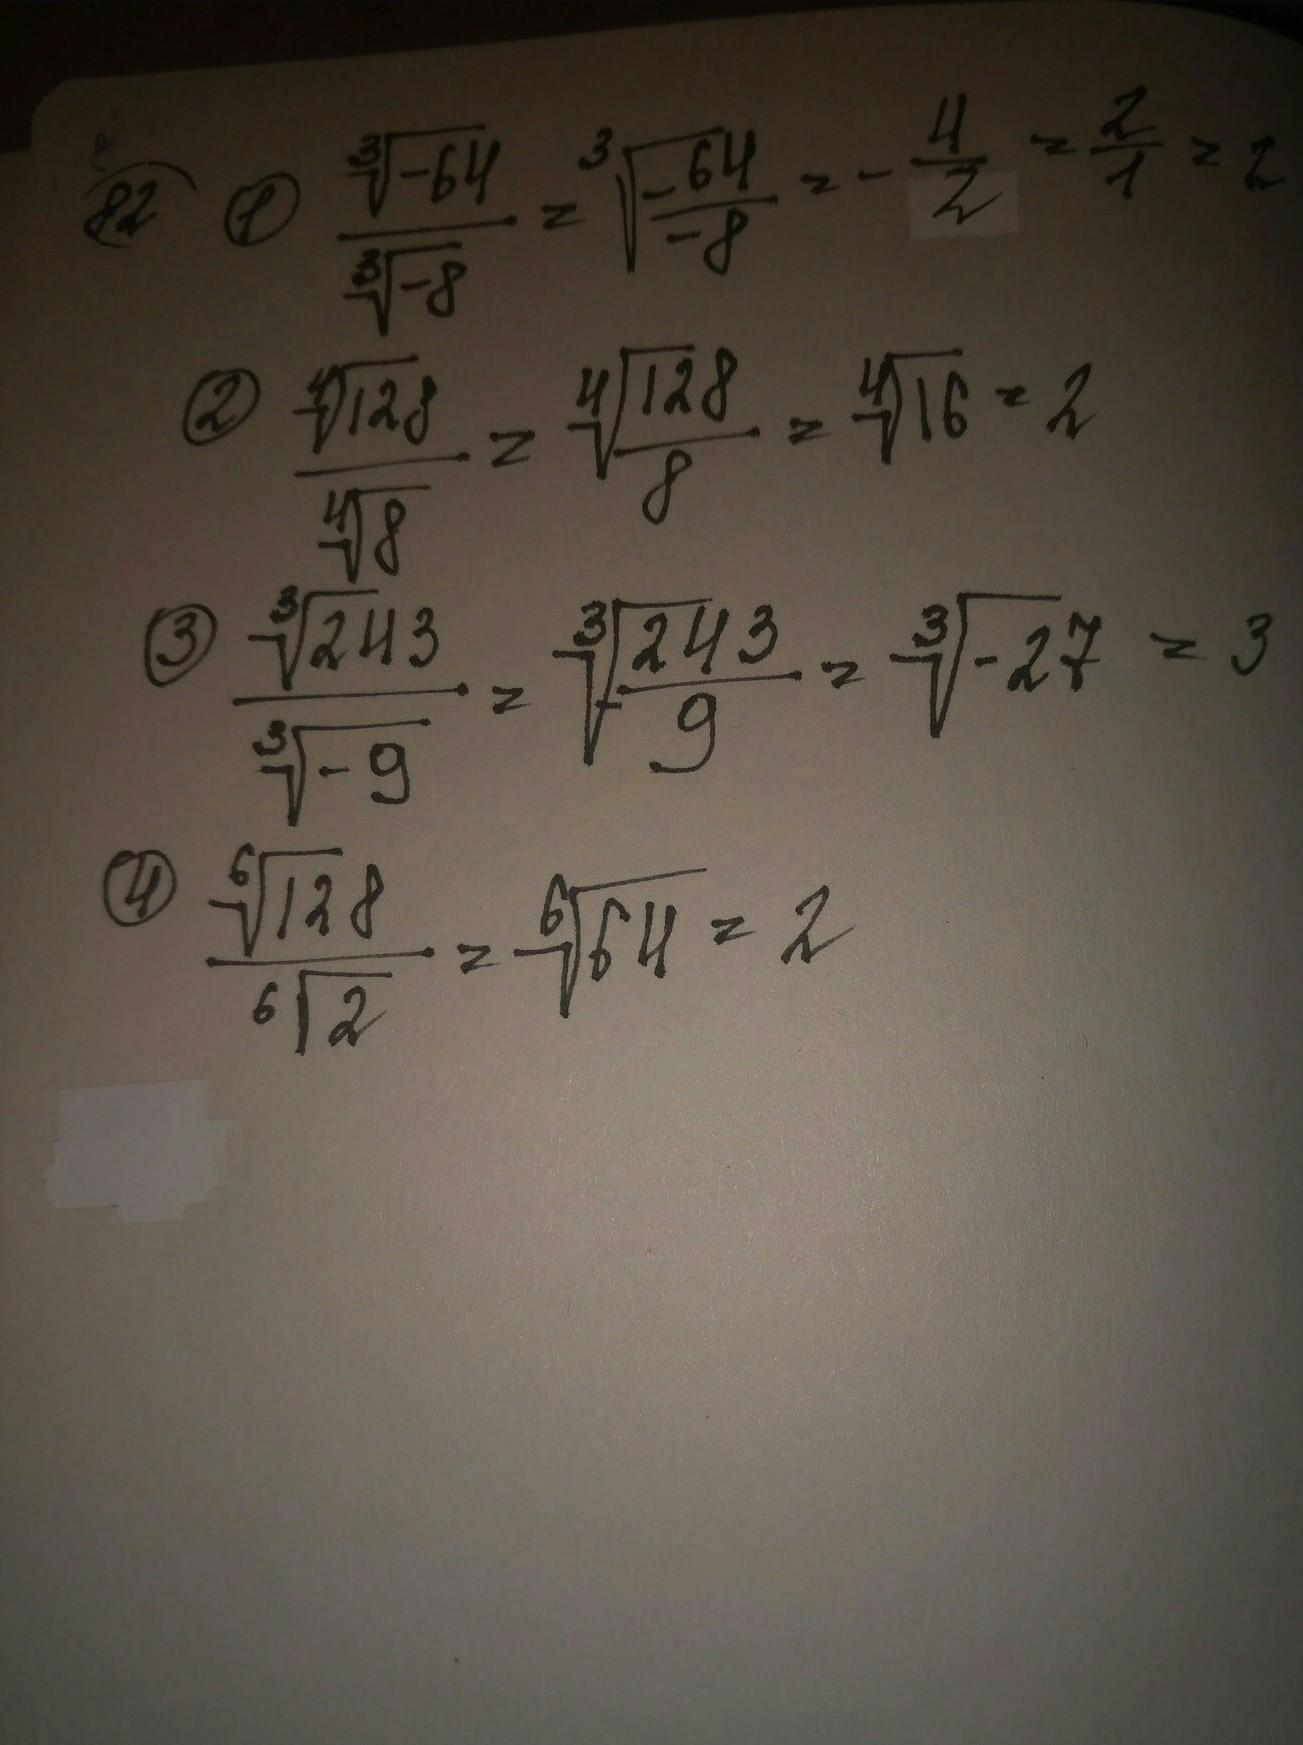 82 ① ∛-64 / ∛-8 = ∛(-64 / -8) = - 4/2 = 2/1 = 2
② ∜128 / ∜8 = ∜(128 / 8) = ∜16 = 2
③ ∛243 / ∛-9 = ∛(- 243 / 9) = ∛-27 = 3
④ ⁶√128 / ⁶√2 = ⁶√64 = 2